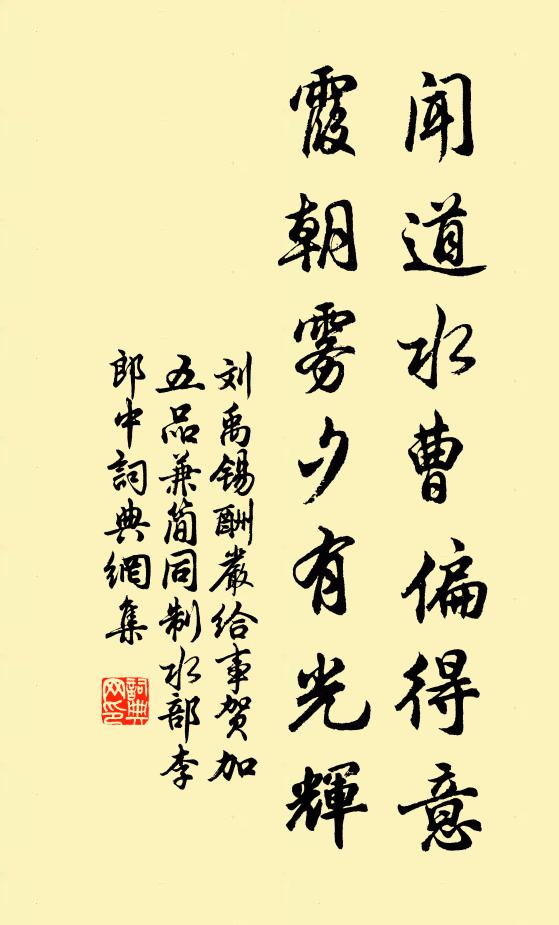 聞道水曹偏得意
霞朝雾夕有光輝
刘禹锡酬嚴给事贺加
五品兼简同制水部李
郎中詞典網集
詞典网印